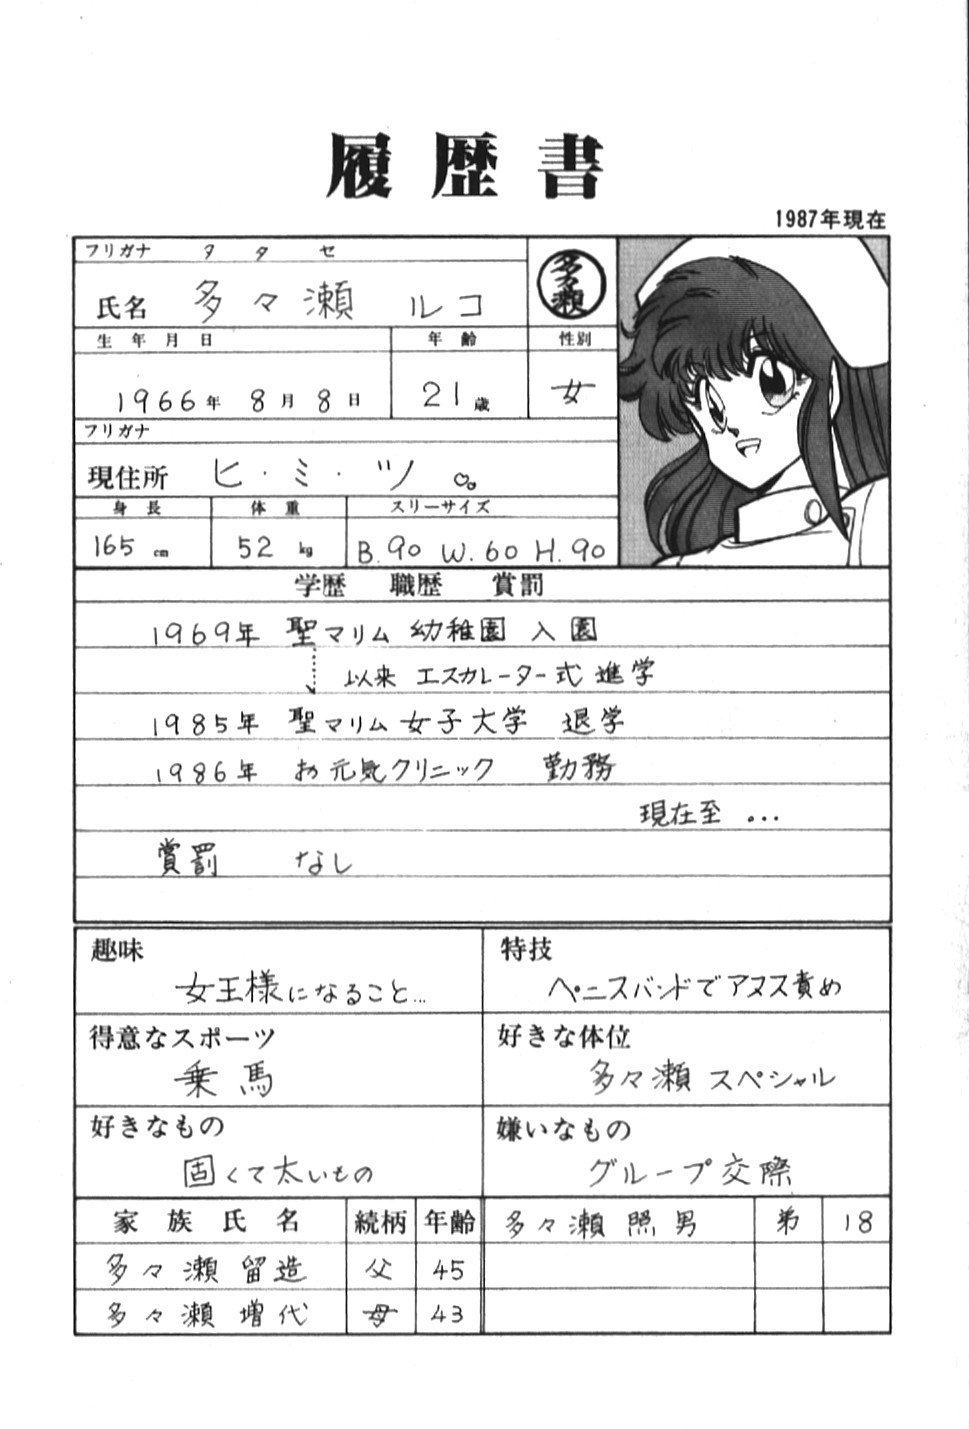 履歴書
1987年現在
フリガナ タタセ
氏名 多々瀬 ルコ
多々瀬
生年月日 年齢 性別
1966年 8月 8日 21歳 女
フリガナ
現住所 ヒ・ミ・ツ
身長 体重 スリーサイズ
165cm 52kg B.90 W.60 H.90
学歴 職歴 賞罰
1969年 聖マリム幼稚園 入園
以来 エスカレーター式進学
1985年 聖マリム女子大学 退学
1986年 お元気クリニック 勤務
現在至 ...
賞罰 なし
趣味
女王様になること...
特技
ペニスバンドでアヌス責め
得意なスポーツ
乗馬
好きな体位
多々瀬スペシャル
好きなもの
固くて太いもの
嫌いなもの
グループ交際
家族氏名 続柄 年齢
多々瀬 留造 父 45
多々瀬 増代 母 43
多々瀬 照男 弟 18